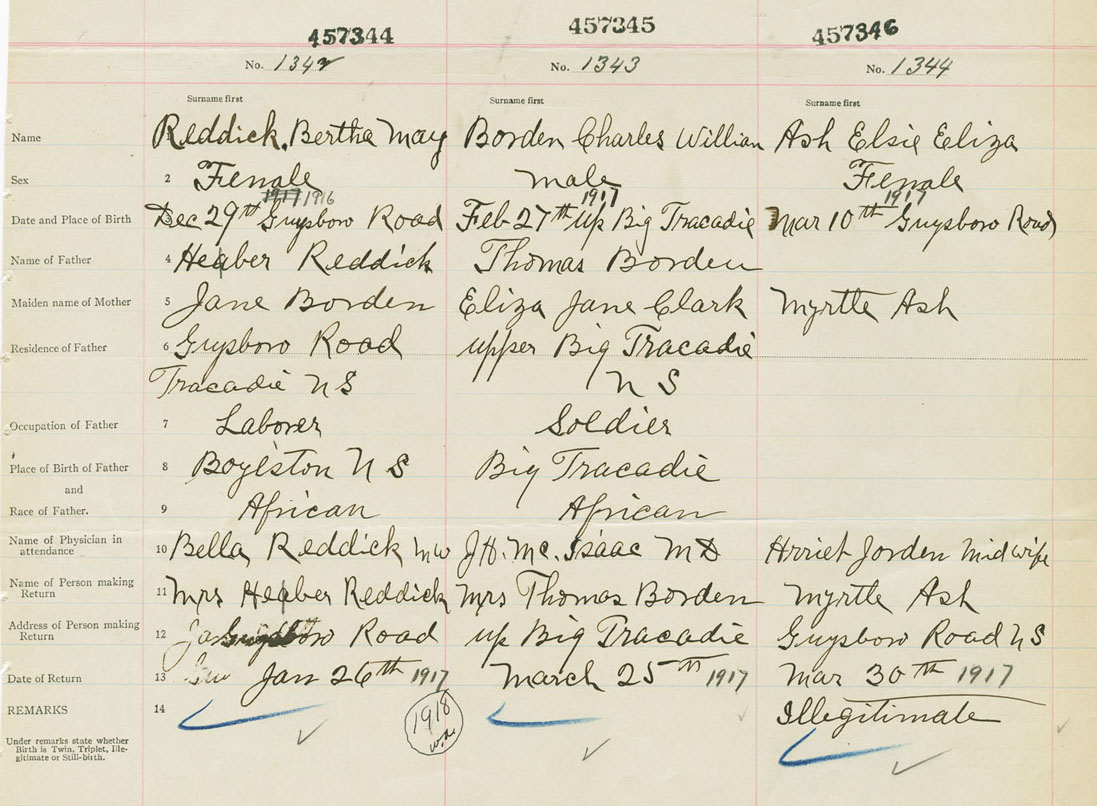 457344 457345 457346
No. 1342 No. 1343 No. 1344
Surname first Surname first Surname first
Name 1 Reddick, Bertha May Borden Charles William Ash Elsie Eliza
Sex 2 Female male Female
1917 1916 1917 1917
Date and Place of Birth Dec 29th Guysboro Road Feb 27th up Big Tracadie Mar 10th Guysboro Road
Name of Father 4 Heber Reddick Thomas Borden
Maiden name of Mother 5 Jane Borden Eliza Jane Clark Myrtle Ash
Residence of Father 6 Guysboro Road upper Big Tracadie
Tracadie N S N S
Occupation of Father 7 Laborer Soldier
Place of Birth of Father 8 Boyleston N S Big Tracadie
and
Race of Father. 9 African African
Name of Physician in
attendance 10 Bella Reddick mw J H. Mc. Isaac MD Hrriet Jorden Midwife
Name of Person making
Return 11 Mrs Heber Reddick Mrs Thomas Borden Myrtle Ash
Address of Person making
Return 12 Guysboro Road up Big Tracadie Guysboro Road N S
Date of Return 13 Jan 26th 1917 March 25th 1917 Mar 30th 1917
REMARKS 14 1918 Illegitimate
Under remarks state whether
Birth is Twin, Triplet, Ille-
gitimate or Still-birth.